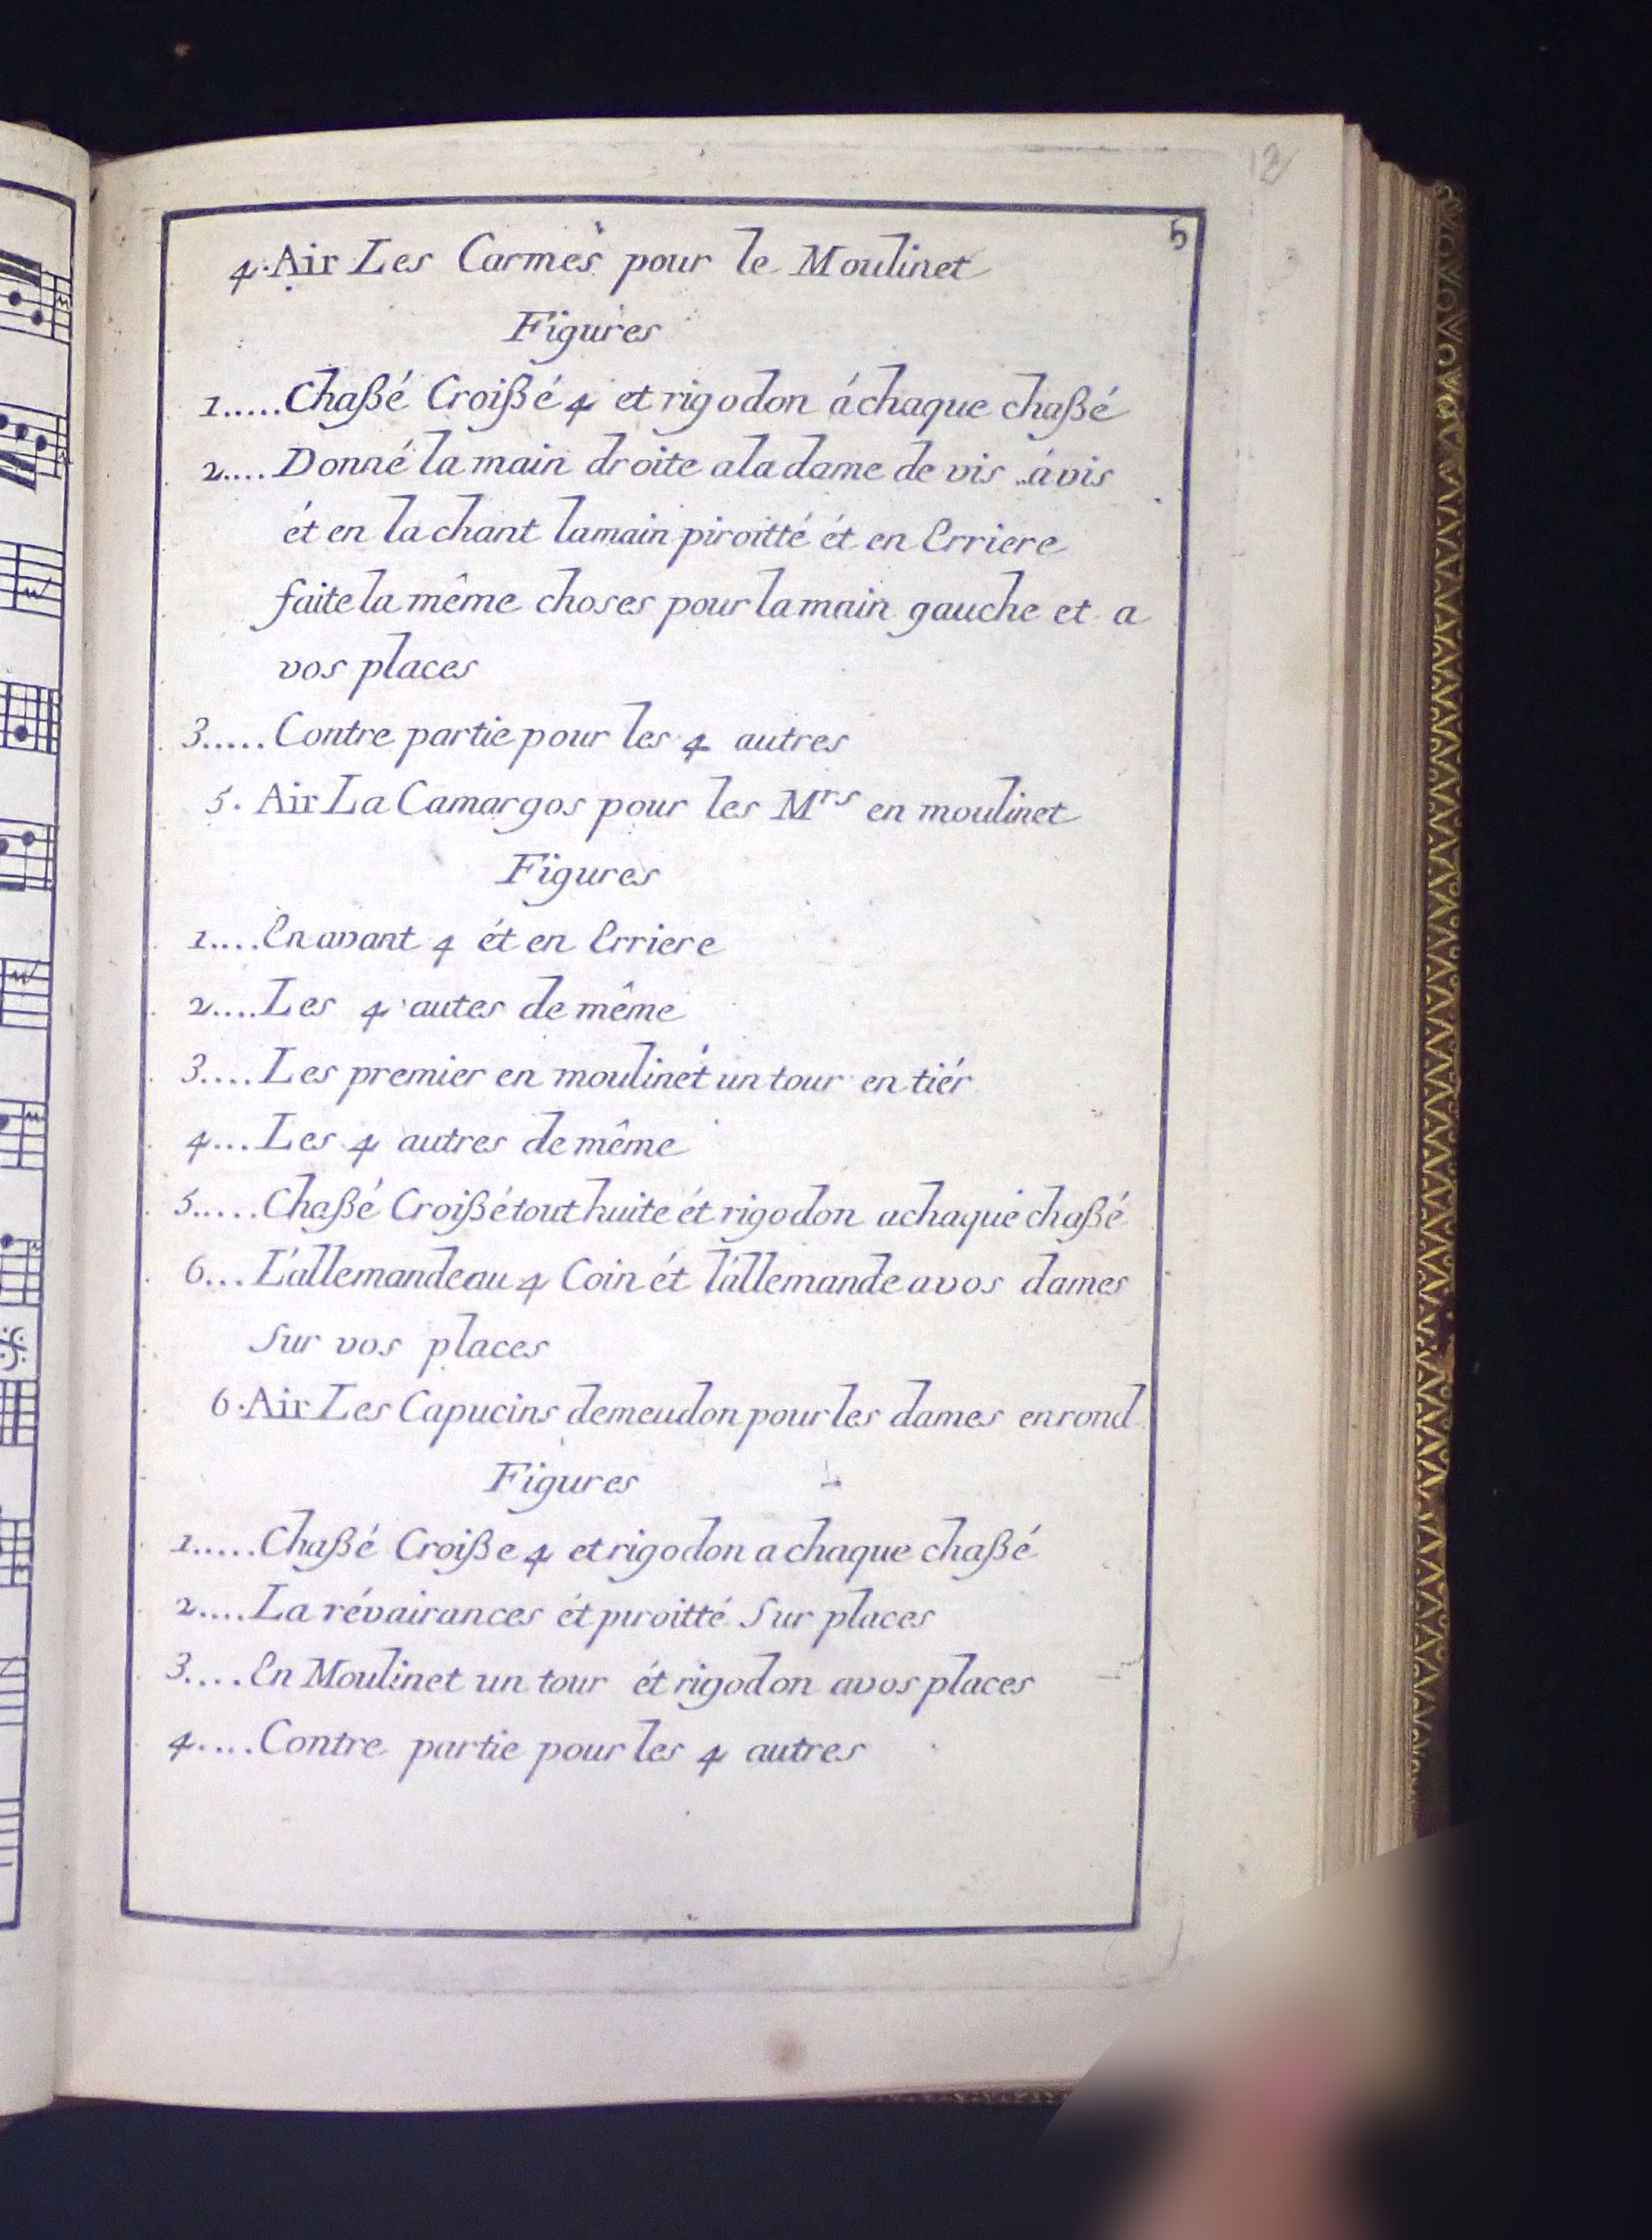 12
5
4. Air Les Carmes pour le Moulinet
Figures
1.....Chaßé Croißé 4 et rigodon á chaque chaßé
2....Donné la main droite a la dame de vis á vis
ét en la chant la main piroitté ét en Erriere
faite la même choses pour la main gauche et a
vos places
3.....Contre partie pour les 4 autres
5. Air La Camargos pour les Mrs en moulinet
Figures
1....En avant 4 ét en Erriere
2....Les 4 autes de même
3....Les premier en moulinét un tour en tiér
4...Les 4 autres de même
5.....Chaßé Croißé tout huite ét rigodon a chaque chaßé
6...L'allemande au 4 Coin ét l'allemande a vos dames
Sur vos places
6. Air Les Capucins de meudon pour les dames en rond
Figures
1.....Chaßé Croiße 4 et rigodon a chaque chaßé
2....La révairances ét piroitté Sur places
3....En Moulinet un tour ét rigodon a vos places
4....Contre partie pour les 4 autres